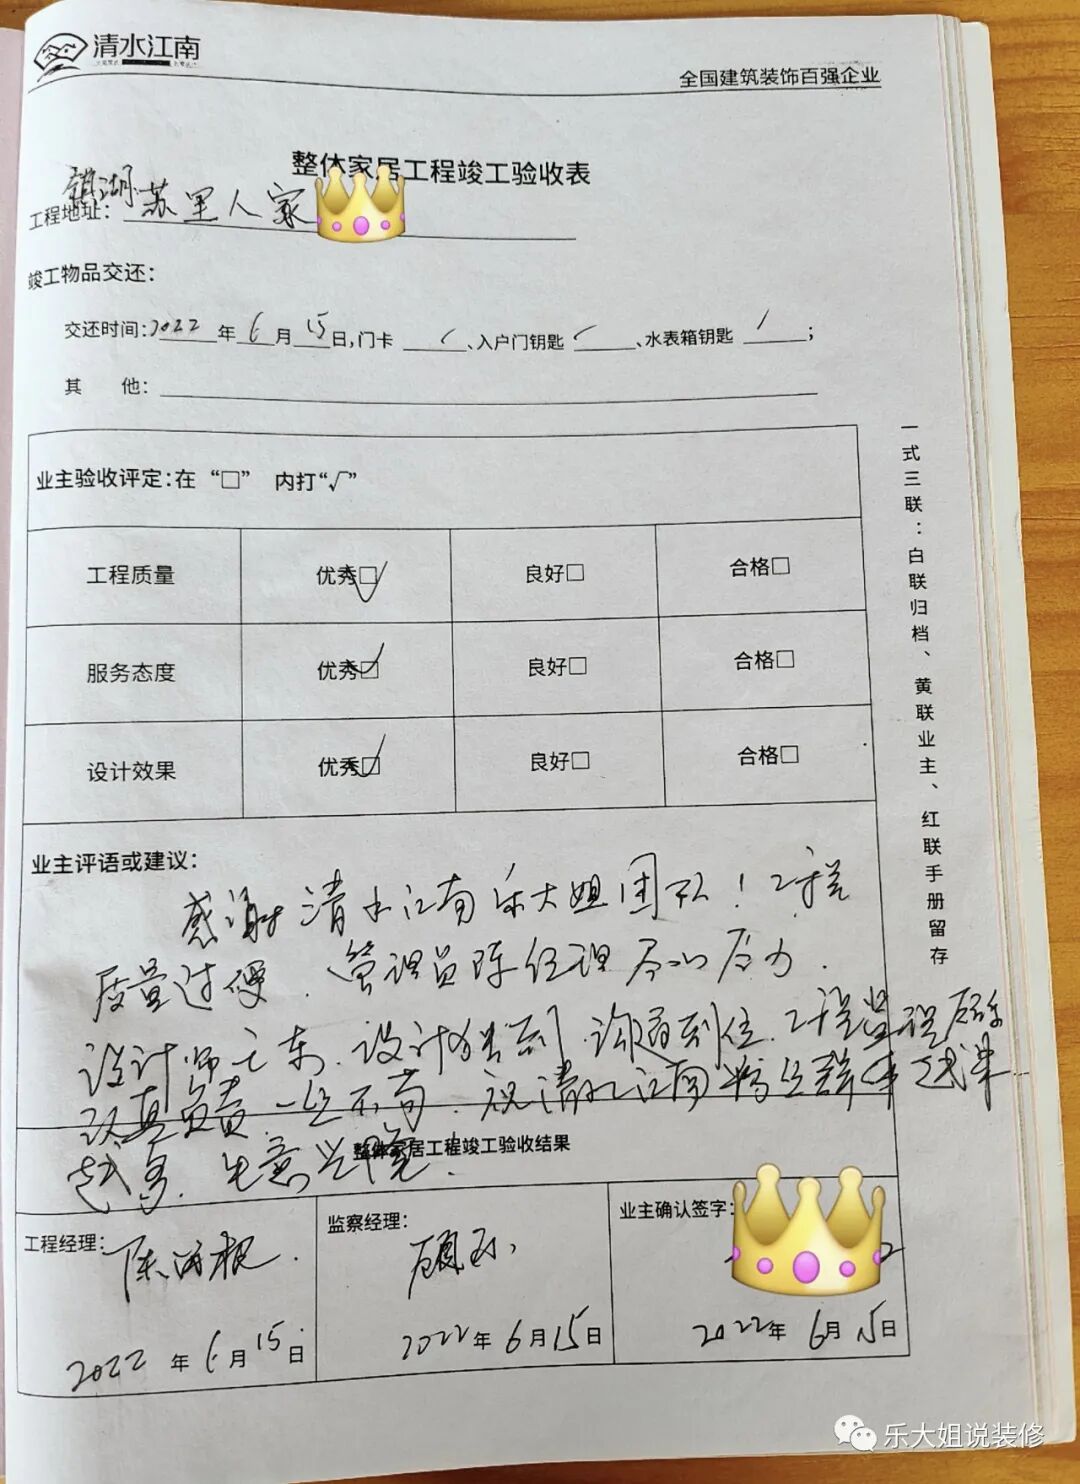 清水江南
全国建筑装饰百强企业
整体家居工程竣工验收表
镇湖
工程地址：苏里人家
竣工物品交还：
交还时间：2022年6月15日，门卡 、入户门钥匙 、水表箱钥匙 1；
其 他：
业主验收评定：在“□” 内打“√”
工程质量 优秀☑ 良好□ 合格□
服务态度 优秀☑ 良好□ 合格□
设计效果 优秀☑ 良好□ 合格□
业主评语或建议：
感谢清水江南乐大姐团队！工程
质量过硬、管理员陈经理尽心尽力．
设计师 东、设计 到 沟通到位、工程监理
认真负责、一丝不苟！祝清水江南 越来
越多、生意兴隆！
整体家居工程竣工验收结果
工程经理：陈 根
2022年6月15日
监察经理：顾
2022年6月15日
业主确认签字：
2022年6月15日
一式三联：白联归档、黄联业主、红联手册留存
乐大姐说装修